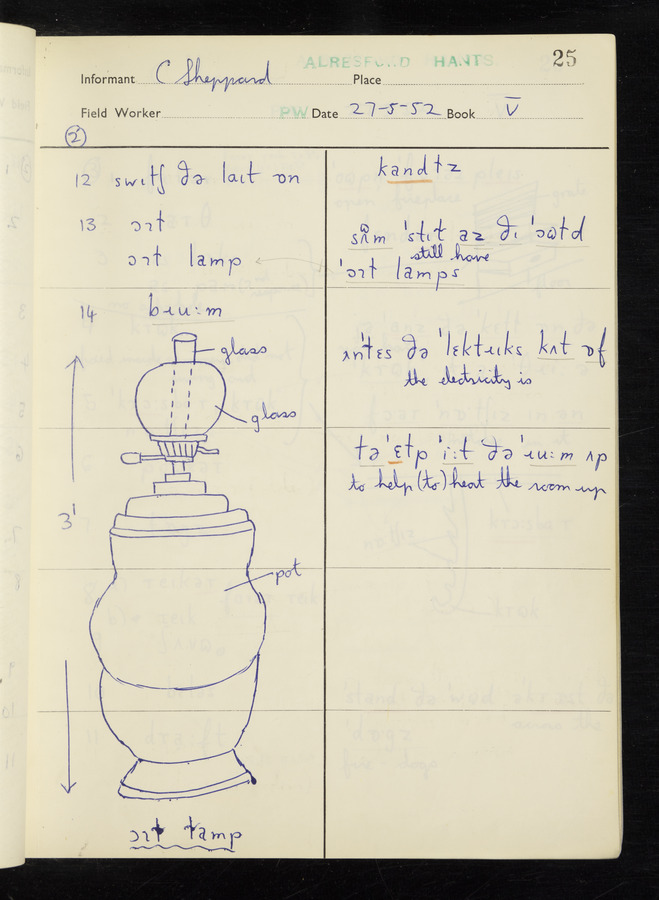 25
ALRESFORD HANTS.
Informant C Sheppard Place
Field Worker PW Date 27-5-52 Book V
2
12 switʃ ðə lait ɒn
kandɫz
13 ɔɪɫ
ɔɪɫ lamp
ˈstɪɫ az ðɪ
still have
ˈɔɪɫ lamps
14 bɹuːm
glass
glass
ðə ˈlɛktɹɪks kʌt ɒf
the electricity is
3'
tə ˈɛɫp ˈiːt ðə ˈɹuːm ʌp
to help (to) heat the room up
pot
ɔɪɫ lamp